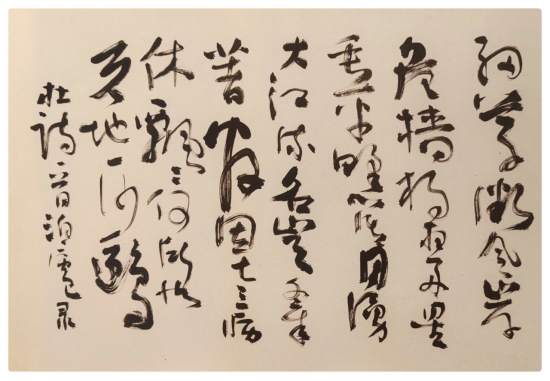 细草微风岸
危樯独夜舟星
垂平野阔月涌
大江流名岂文章
著官因老病
休飘飘何所似
天地一沙鸥
杜诗一首泊庐录